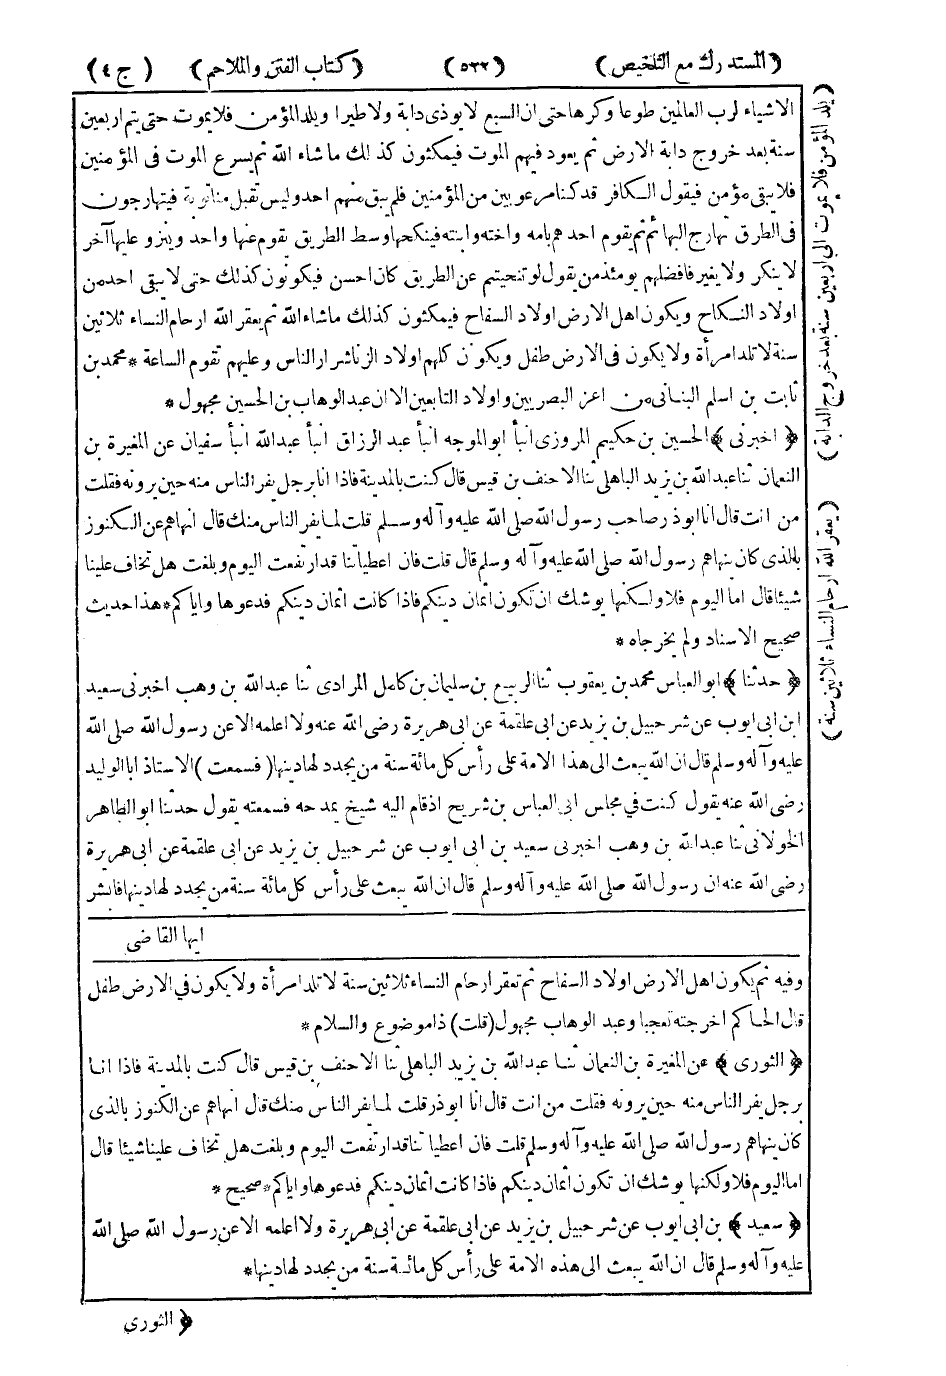 (المستدرك مع التلخيص) (٥٢٢) (كتاب الفتن والملاحم) (ج ٤)
الاشياء لرب العالمين طوعا وكرها حتى ان السبع لا يوذى دابة ولا طيرا ويلد المؤمن فلا يموت حتى يتم اربعين
سنة بعد خروج دابة الارض ثم يعود فيهم الموت فيمكثون كذلك ما شاء الله ثم يسرع الموت فى المؤمنين
فلا يبقى مؤمن فيقول الكافر قد كنا مرعوبين من المؤمنين فلم يبق منهم احد وليس تقبل منا توبة فيتهارجون
فى الطرق تهارج البهائم ثم يقوم احدهم بامه واخته وابنته فينكحها وسط الطريق يقوم عنها واحد وينزو عليها آخر
لا ينكر ولا يغير فافضلهم يومئذ من يقول لو تنحيتم عن الطريق كان احسن فيكونون كذلك حتى لا يبقى احد من
اولاد النكاح ويكون اهل الارض اولاد السفاح فيمكثون كذلك ماشاء الله ثم يعقر الله ارحام النساء ثلاثين
سنة لا تلد امرأة ولا يكون فى الارض طفل ويكون كلهم اولاد الزنا شرار الناس وعليهم تقوم الساعة * محمد بن
ثابت بن اسلم البنانى من اعز البصريين واولاد التابعين الا ان عبد الوهاب بن الحسين مجهول *
﴿ اخبرنى ﴾ الحسين بن حكيم المروزى انبأ ابو الموجه انبأ عبد الرزاق انبأ عبد الله انبأ سفيان عن المغيرة بن
النعمان ثنا عبد الله بن يزيد الباهلى ثنا الاحنف بن قيس قال كنت بالمدينة فاذا انا برجل يفر الناس منه حين يرونه فقلت
من انت قال انا ابوذر صاحب رسول الله صلى الله عليه وآله وسلم قلت لما يفر الناس منك قال انهاهم عن الكنوز
بالذى كان ينهاهم رسول الله صلى الله عليه وآله وسلم قال قلت فان اعطياتنا قد ارتفعت اليوم وبلغت هل تخاف علينا
شيئا قال اما اليوم فلا ولكنها يوشك ان تكون اثمان دينكم فاذا كانت اثمان دينكم فدعوها واياكم * هذا حديث
صحيح الاسناد ولم يخرجاه *
﴿ حدثنا ﴾ ابو العباس محمد بن يعقوب ثنا الربيع بن سليمان بن كامل المرادى ثنا عبد الله بن وهب اخبرنى سعيد
ابن ابى ايوب عن شرحبيل بن يزيد عن ابى علقمة عن ابى هريرة رضى الله عنه ولا اعلمه الا عن رسول الله صلى الله
عليه وآله وسلم قال ان الله يبعث الى هذا الامة على رأس كل مائة سنة من يجدد لها دينها (فسمعت) الاستاذ ابا الوليد
رضى الله عنه يقول كنت في مجلس ابى العباس بن شريح اذ قام اليه شيخ يمدحه فسمعته يقول حدثنا ابو الطاهر
الخولانى ثنا عبد الله بن وهب اخبرنى سعيد بن ابى ايوب عن شرحبيل بن يزيد عن ابى علقمة عن ابى هريرة
رضى الله عنه ان رسول الله صلى الله عليه وآله وسلم قال ان الله يبعث على رأس كل مائة سنة من يجدد لها دينها فابشر
ايها القاضى
وفيه ثم يكون اهل الارض اولاد السفاح ثم تعقر ارحام النساء ثلاثين سنة لا تلد امرأة ولا يكون في الارض طفل
قال الحاكم اخرجته تعجبا وعبد الوهاب مجهول (قلت) ذا موضوع والسلام *
﴿ الثورى ﴾ عن المغيرة بن النعمان ثنا عبد الله بن يزيد الباهلى ثنا الاحنف بن قيس قال كنت بالمدينة فاذا انا
برجل يفر الناس منه حين يرونه فقلت من انت قال انا ابوذر قلت لما يفر الناس منك قال انهاهم عن الكنوز بالذى
كان ينهاهم رسول الله صلى الله عليه وآله وسلم قلت فان اعطياتنا قد ارتفعت اليوم وبلغت هل تخاف علينا شيئا قال
اما اليوم فلا ولكنها يوشك ان تكون أثمان دينكم فاذا كانت أثمان دينكم فدعوها واياكم * صحيح *
﴿ سعيد ﴾ بن ابى ايوب عن شرحبيل بن يزيد عن ابى علقمة عن ابى هريرة ولا اعلمه الا عن رسول الله صلى الله
عليه وآله وسلم قال ان الله يبعث الى هذه الامة على رأس كل مائة سنة من يجدد لها دينها *
﴿ الثوري
(يلد المؤمن فلا يموت الى اربعين سنة بعد خروج الدابة)
(يعقر الله ارحام النساء ثلاثين سنة)